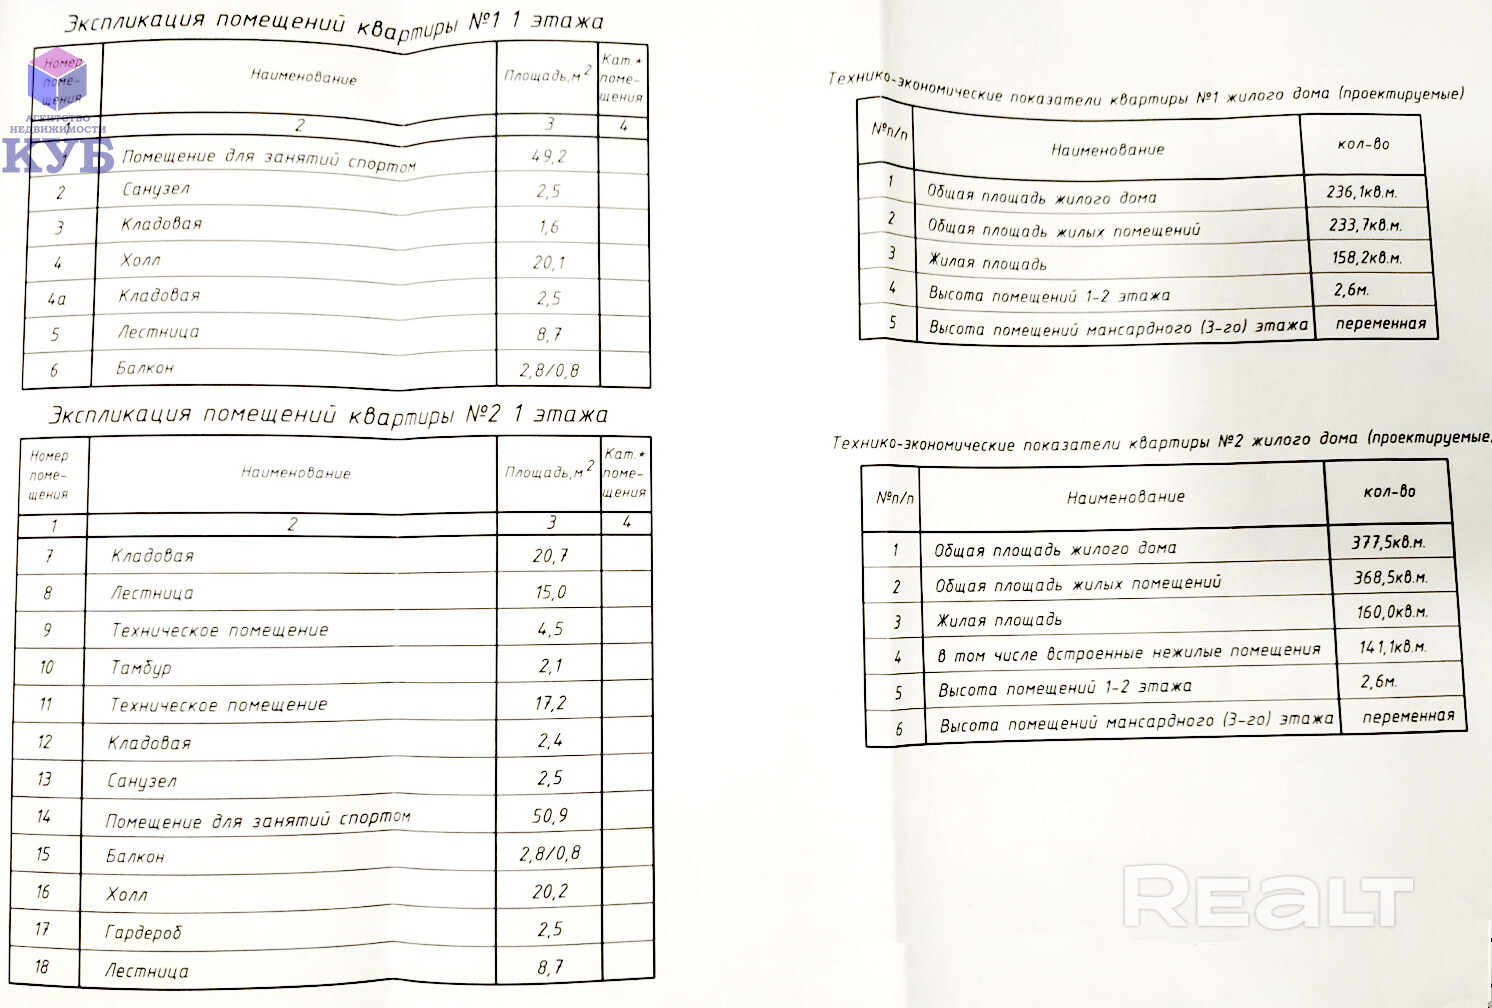 Экспликация помещений квартиры №1 1 этажа
Номер поме- щения | Наименование | Площадь,м² | Кат.* поме- щения
1 | 2 | 3 | 4
1 | Помещение для занятий спортом | 49,2
2 | Санузел | 2,5
3 | Кладовая | 1,6
4 | Холл | 20,1
4а | Кладовая | 2,5
5 | Лестница | 8,7
6 | Балкон | 2,8/0,8
Экспликация помещений квартиры №2 1 этажа
Номер поме- щения | Наименование | Площадь,м² | Кат.* поме- щения
1 | 2 | 3 | 4
7 | Кладовая | 20,7
8 | Лестница | 15,0
9 | Техническое помещение | 4,5
10 | Тамбур | 2,1
11 | Техническое помещение | 17,2
12 | Кладовая | 2,4
13 | Санузел | 2,5
14 | Помещение для занятий спортом | 50,9
15 | Балкон | 2,8/0,8
16 | Холл | 20,2
17 | Гардероб | 2,5
18 | Лестница | 8,7
Технико-экономические показатели квартиры №1 жилого дома (проектируемые)
№п/п | Наименование | кол-во
1 | Общая площадь жилого дома | 236,1кв.м.
2 | Общая площадь жилых помещений | 233,7кв.м.
3 | Жилая площадь | 158,2кв.м.
4 | Высота помещений 1-2 этажа | 2,6м.
5 | Высота помещений мансардного (3-го) этажа | переменная
Технико-экономические показатели квартиры №2 жилого дома (проектируемые
№п/п | Наименование | кол-во
1 | Общая площадь жилого дома | 377,5кв.м.
2 | Общая площадь жилых помещений | 368,5кв.м.
3 | Жилая площадь | 160,0кв.м.
4 | в том числе встроенные нежилые помещения | 141,1кв.м.
5 | Высота помещений 1-2 этажа | 2,6м.
6 | Высота помещений мансардного (3-го) этажа | переменная
АГЕНТСТВО
НЕДВИЖИМОСТИ
КУБ
REALT